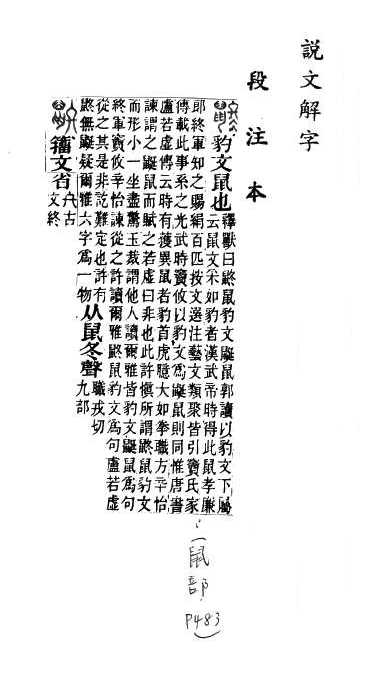 說文解字
段注本
豹文鼠也
釋獸曰鼨鼠豹文鼮鼠郭讀以豹文下屬
云鼠文采如豹者漢武帝時得此鼠孝廉
郎終軍知之賜絹百匹按文選注藝文類聚皆引竇氏家
傳載此事系之光武時竇攸以豹文爲鼮鼠則同惟唐書
盧若虛傳云時有獲異鼠者豹首虎臆大如拳職方辛怡
諫謂之鼮鼠而賦之若虛曰非也此許愼所謂鼨鼠豹文
而形小一坐盡驚玉裁謂他人讀爾雅皆豹文鼮鼠爲句
終軍竇攸辛怡諫從之許讀爾雅鼨鼠豹文爲句盧若虛
從之其是非訖難定也許有
鼨無鼮疑爾雅六字爲一物从鼠冬聲職戎切
九部
籒文省
古
文終
鼠部
P483